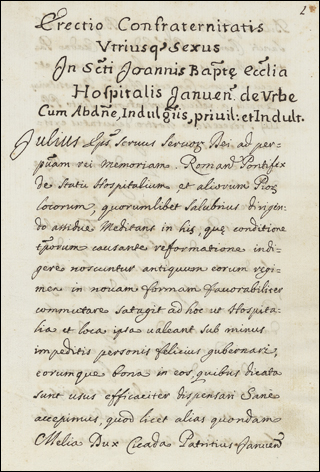 2
Erectio Confraternitatis
Vtriusq; Sexus
In Scti Joannis Baptę Ecclia
Hospitalis Januen. de Vrbe
Cum Abdñe, Indulgijs, priuil: et Indult.
Julius Eps. Seruus Seruoꝝ Dei ad per-
petuam rei memoriam. Roman. Pontifex
de Statu Hospitalium et aliorum Pioꝝ
locorum, quorumlibet Salubriùs dirigen-
do assidue Meditans in his, quę conditione
tp̃orum causante reformatione indi-
gere noscuntur antiquum eorum regi-
men in nouam formam fauorabiliter
commutare satagit ad hoc ut Hospita-
lia et loca ipsa ualeant sub minus
impeditis personis felicius gubernari,
eorumque bona in eos, quibus dicata
sunt usus efficaciter dispensari Sane
accepimus, quod licet alias quondam
Melia Dux Cicada Patritius Januen